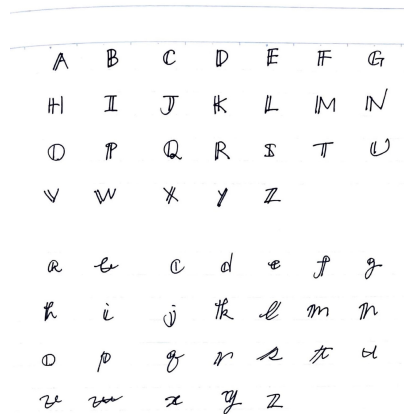 A B C D E F G
H I J K L M N
O P Q R S T U
V W X Y Z
a b c d e f g
h i j k l m n
o p q r s t u
v w x y z